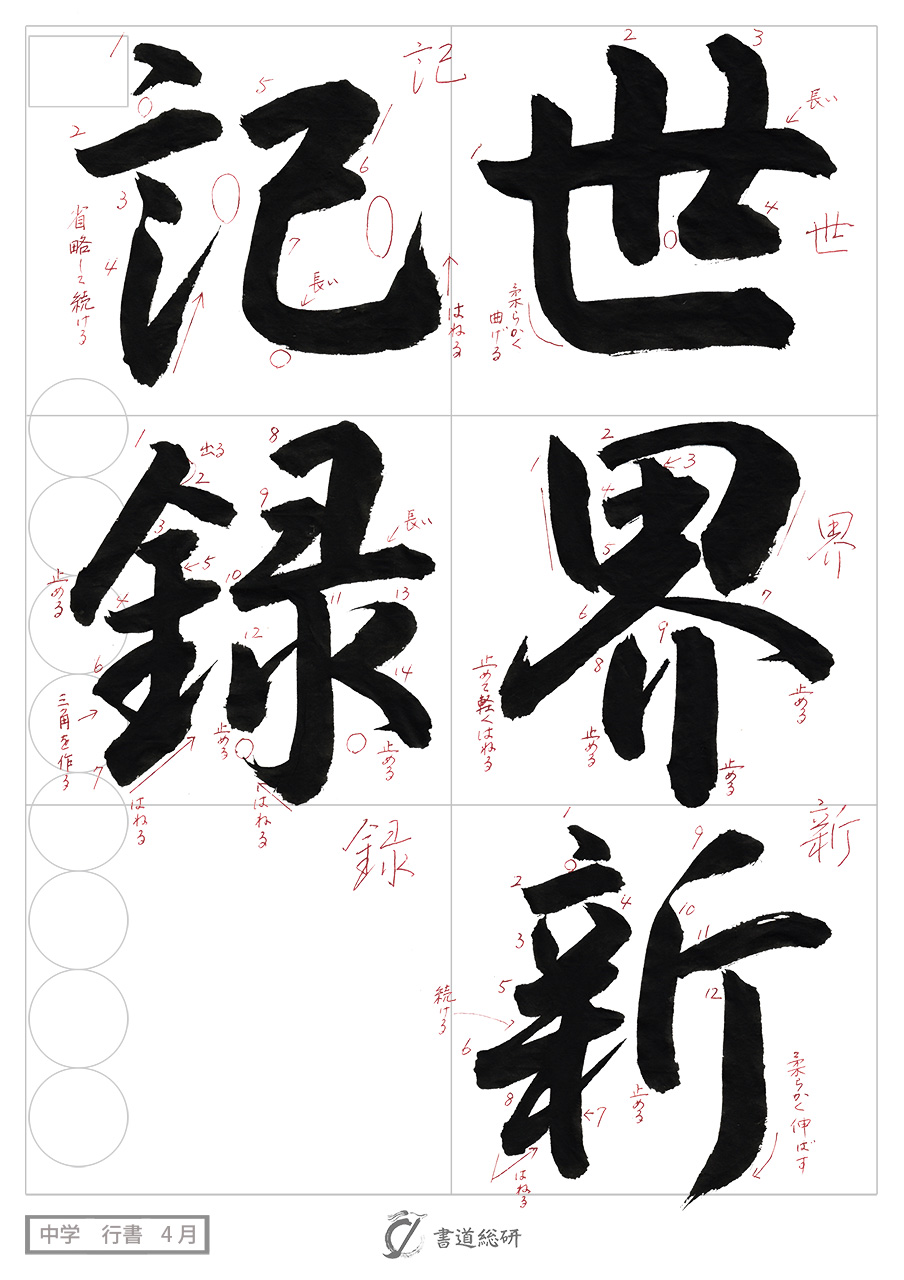 世界新
記録
1
2
3
長い
4
世
柔らかく
曲げる
1
2
3
4
5
界
6
7
8
9
止めて軽くはねる
止める
止める
止める
1
2
3
4
5
続ける
6
7
8
はねる
9
10
11
12
止める
柔らかく伸ばす
新
1
2
3
4
省略して続ける
5
6
7
長い
はねる
記
1
出る
2
3
4
5
6
7
止める
三角を作る
はねる
8
9
10
長い
11
12
13
14
止める
はねる
止める
録
中学 行書 4月
書道総研